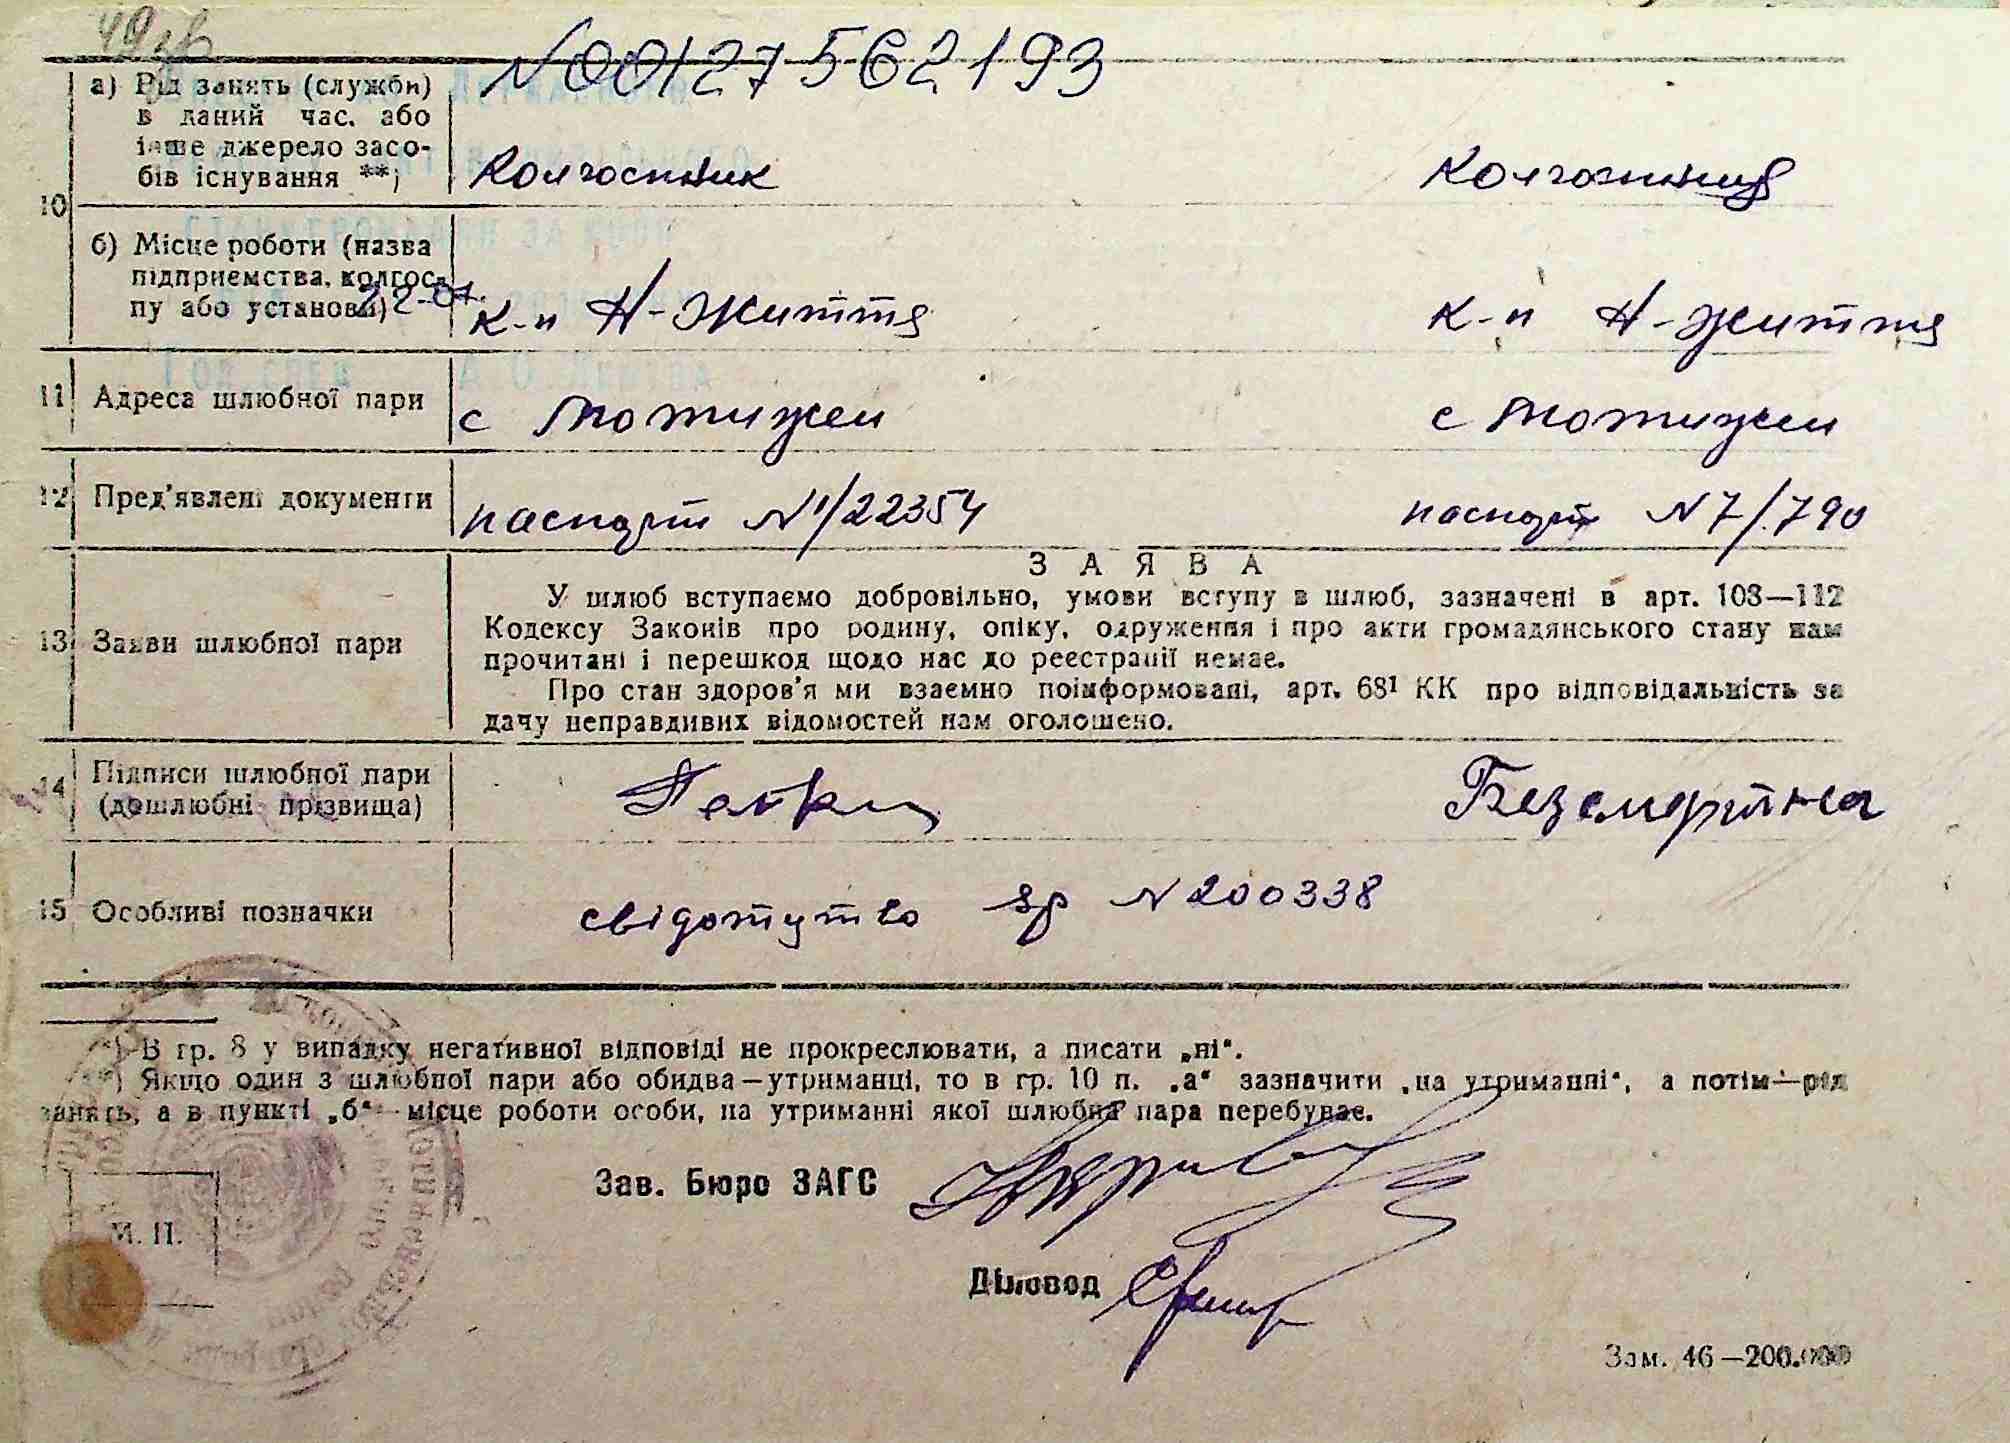 № 00127562193
10
а) Рід занять (служби) в даний час, або інше джерело засобів існування **)
Колгоспник
Колгоспниця
б) Місце роботи (назва підприємства, колгоспу або установи)
22-07.
к-п Н-Життя
к-п Н-Життя
11 Адреса шлюбної пари
с Мотижен
с Мотижен
12 Пред'явлені документи
паспорт № 1/22354
паспорт № 7/790
13 Заяви шлюбної пари
ЗАЯВА
У шлюб вступаємо добровільно, умови вступу в шлюб, зазначені в арт. 108—112
Кодексу Законів про родину, опіку, одруження і про акти громадянського стану нам
прочитані і перешкод щодо нас до реєстрації немає.
Про стан здоров'я ми взаємно поінформовані, арт. 68¹ КК про відповідальність за
дачу неправдивих відомостей нам оголошено.
14 Підписи шлюбної пари (дошлюбні прізвища)
Безсмертна
15 Особливі позначки
свідотцтво № 200338
*) В гр. 8 у випадку негативної відповіді не прокреслювати, а писати „ні“.
**) Якщо один з шлюбної пари або обидва—утриманці, то в гр. 10 п. „а“ зазначити „на утриманні“, а потім—рід
занять, а в пункті „б“—місце роботи особи, на утриманні якої шлюбна пара перебуває.
Зав. Бюро ЗАГС
М. П.
Діловод
Зам. 46—200.000